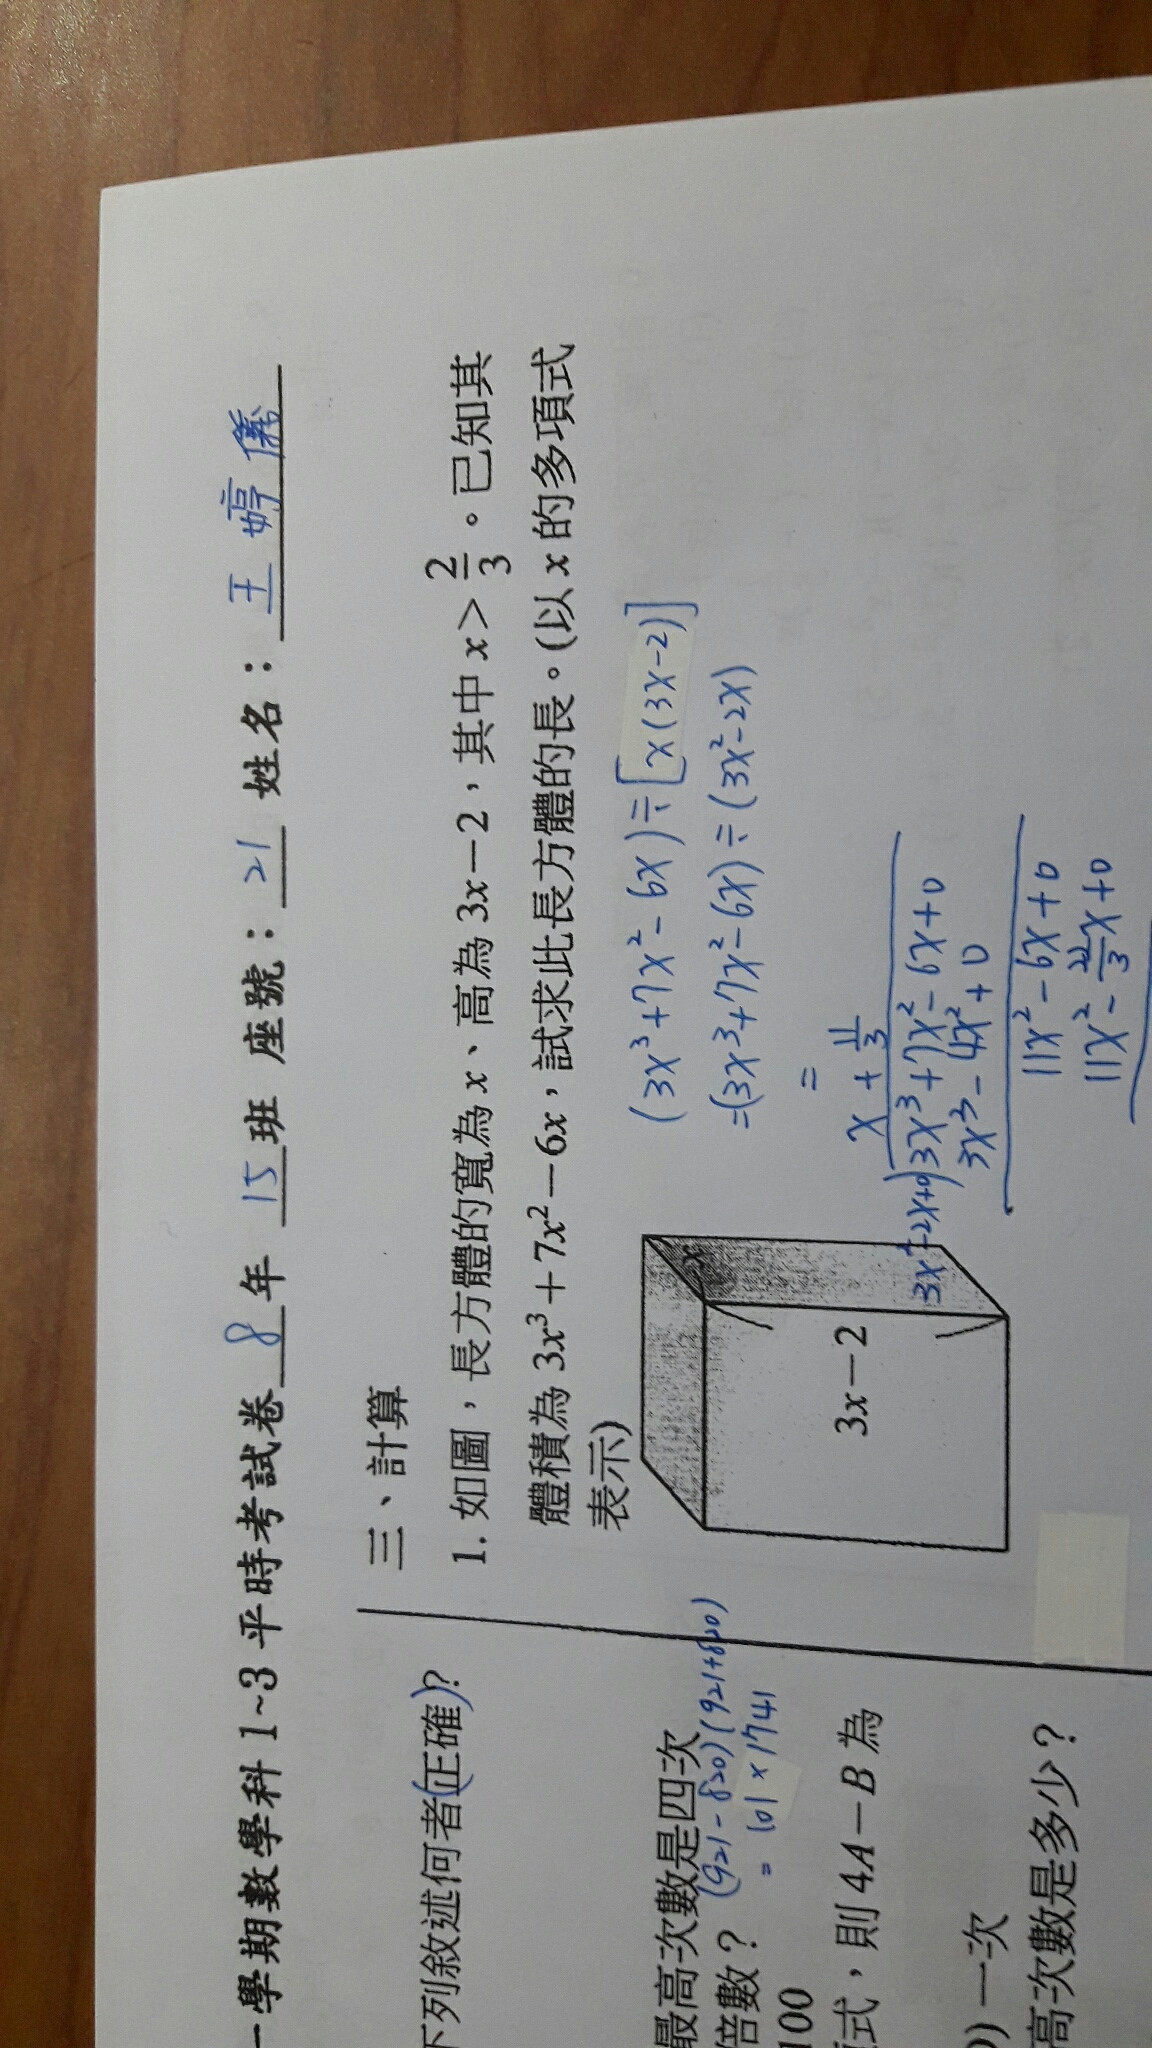 一學期數學學科 1~3 平時考試卷 8 年 15 班 座號：21 姓名：王婷儀
下列敘述何者(正確)?
最高次數是四次
倍數？
(921-820)(921+820)
= 101×1741
100
式，則 4A－B 為
一次
高次數是多少？
三、計算
1. 如圖，長方體的寬為 x、高為 3x－2，其中 x＞2/3。已知其
體積為 3x³＋7x²－6x，試求此長方體的長。(以 x 的多項式
表示)
x
3x－2
(3x³+7x²-6x)÷[x(3x-2)]
=(3x³+7x²-6x)÷(3x²-2x)
=
x + 11/3
3x²-2x+0)3x³+7x²-6x+0
3x³-4x²+0
11x²-6x+0
11x²-22/3x+0